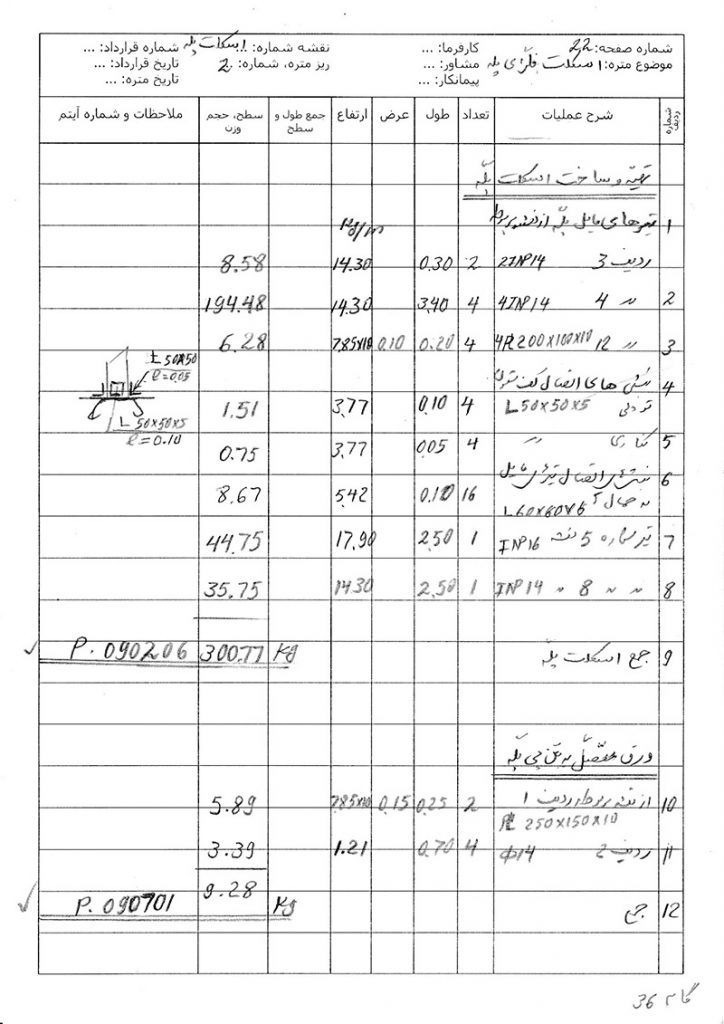 شماره صفحه: 22 کارفرما: ... نقشه شماره: ... اسکلت پله شماره قرارداد: ...
موضوع متره: اسکلت فلزی پله مشاور: ... ریز متره، شماره: 2 تاریخ قرارداد: ...
پیمانکار: ... تاریخ متره: ...
شماره ردیف شرح عملیات تعداد طول عرض ارتفاع جمع طول و سطح سطح، حجم وزن ملاحظات و شماره آیتم
تهیه و ساخت اسکلت پله
1 تیرهای مایل پله از نقشه مربوطه Kg/m
ردیف 3 2INP14 2 0.30 14.30 8.58
2 〃 4 4INP14 4 3.40 14.30 194.48
3 〃 12 4PL200X100X10 4 0.20 0.10 7.85X10 6.28
4 نبشی های اتصال کف ستون
تودلی L50X50X5 4 0.10 3.77 1.51
L 50X50
l=0.05
L 50X50X5
l=0.10
5 کناری 〃 4 0.05 3.77 0.75
6 نبشی اتصال تیرهای مایل
به حمال L60X60X6 16 0.10 5.42 8.67
7 تیر شماره 5 نقشه INP16 1 2.50 17.90 44.75
8 〃 〃 8 〃 INP14 1 2.50 14.30 35.75
9 جمع اسکلت پله Kg 300.77 P. 090206 ✓
ورق متصل به بتن پی پله
10 از نقشه مربوطه ردیف 1 2 0.25 0.15 7.85X10 5.89
PL 250X150X10
11 ردیف 2 Φ14 4 0.70 1.21 3.39
9.28
12 جمع Kg P. 090701 ✓
گام 36